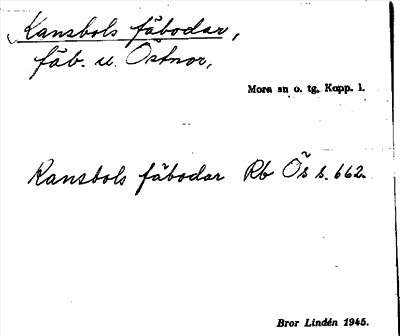 Kansbols fäbodar,
fäb. u. Östnor,
Mora sn o. tg. Kopp. l.
Kansbols fäbodar Rb Ös s. 662
Bror Lindén 1945.